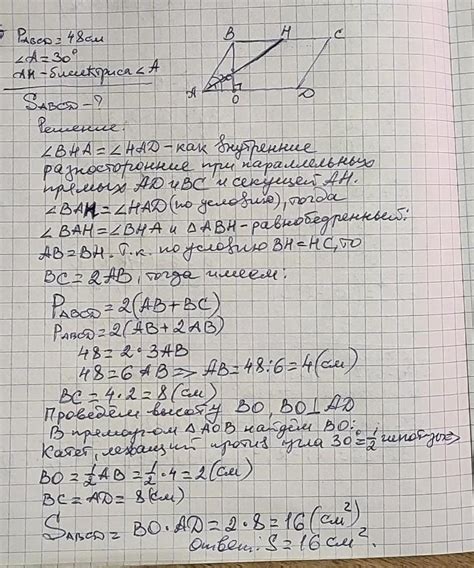 P_ABCD = 48 см
∠A = 30°
AH - биссектриса ∠A
S_ABCD - ?
B H C
A O D
Решение:
∠BHA = ∠HAD - как внутренние
разносторонние при параллельных
прямых AD и BC и секущей AH.
∠BAH = ∠HAD (по условию), тогда
∠BAH = ∠BHA и △ABH - равнобедренный:
AB = BH. Т.к. по условию BH = HC, то
BC = 2AB, тогда имеем:
P_ABCD = 2(AB + BC)
P_ABCD = 2(AB + 2AB)
48 = 2 · 3AB
48 = 6AB => AB = 48 : 6 = 4 (см)
BC = 4 · 2 = 8 (см)
Проведём высоту BO, BO ⊥ AD
В прямоугом △AOB найдём BO:
Катет, лежащий против угла 30° = 1/2 гипотузы
BO = 1/2 AB = 1/2 · 4 = 2 (см)
BC = AD = 8 (см)
S_ABCD = BO · AD = 2 · 8 = 16 (см²)
Ответ: S = 16 см².